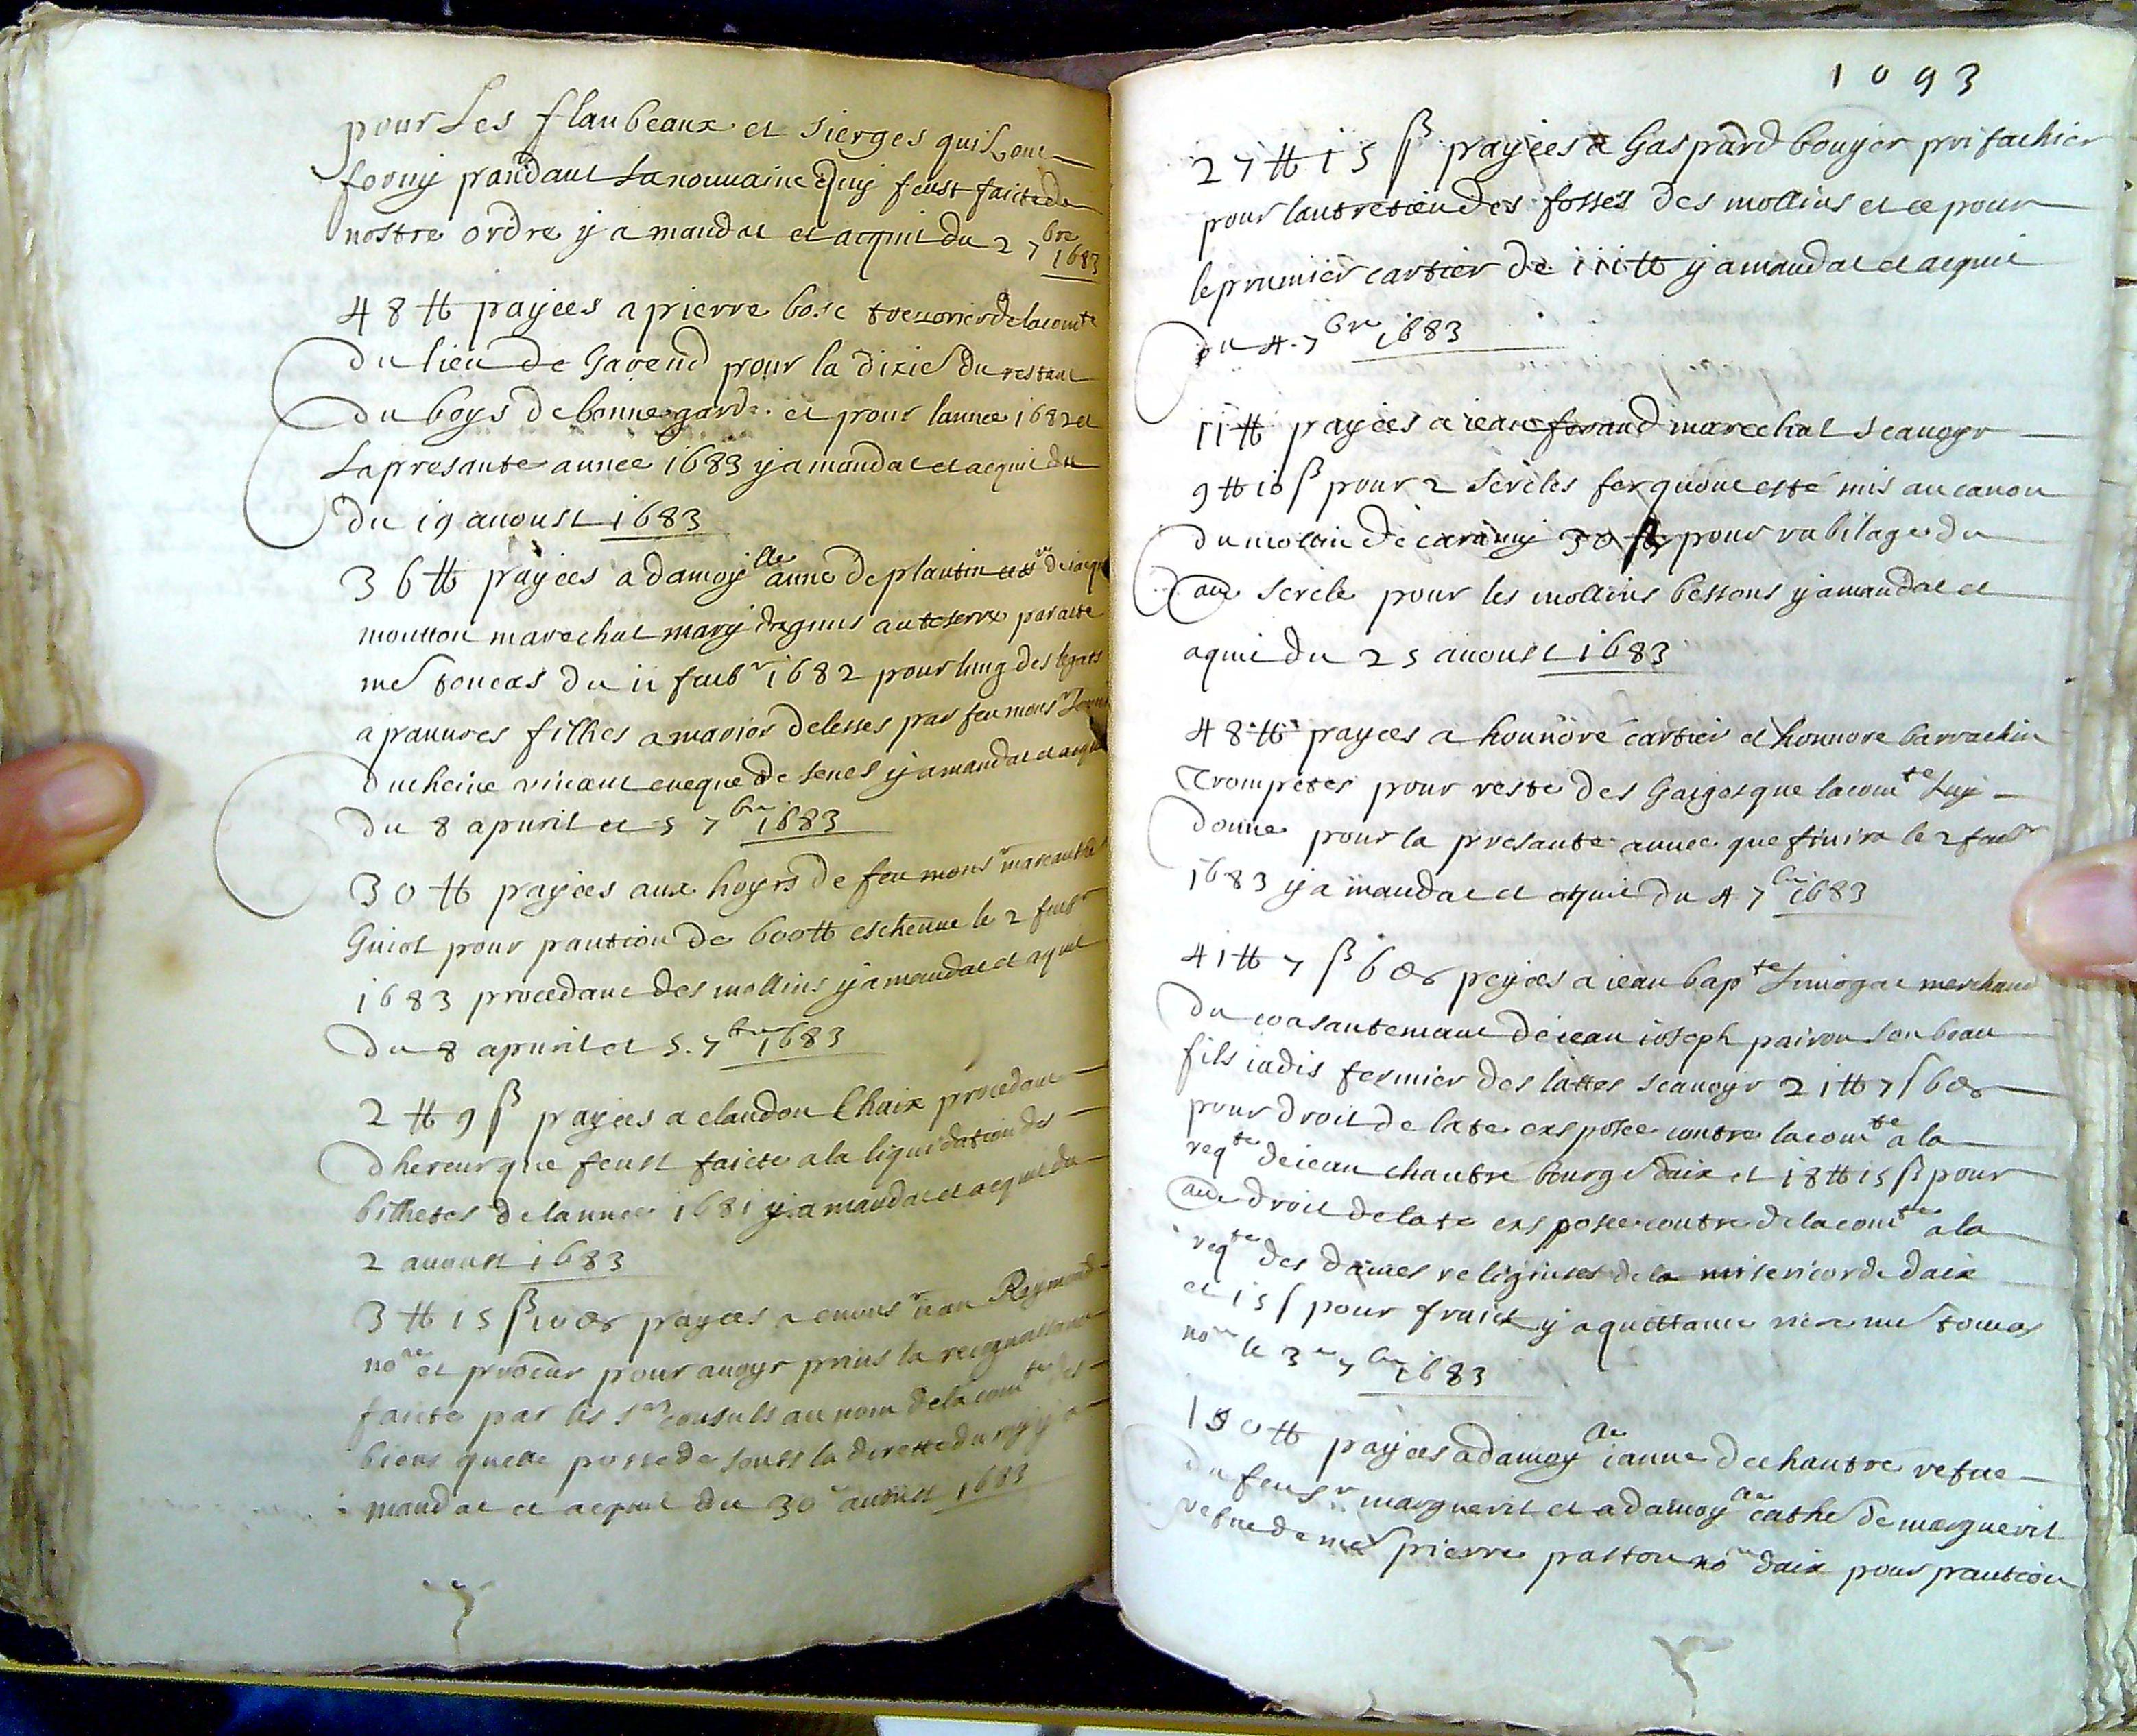 pour Les flanbeaux et sierges quil ont
forny pandant La nouuaine quy feust faicte de
nostre ordre y a mandat et acquit du 2 7bre 1683
48 tt payees a pierre bosc tresorier de la comte
du lieu de Gareud pour la dixie du restant
du boys de bonnegarde et pour lannee 1682 et
La presante annee 1683 y a mandat et acquit du
du 19 auoust 1683
36 tt payees a damoylle anne de plantin
moutton marechal mary dragnus par acte
me toucas du 11 feubr 1682 pour lung des legats
a pauures filhes a marier par feu monsr
ducheine viuant eueque de senes y a mandat et acquit
du 8 apuril et 5 7bre 1683
30 tt payees aux hoyrs de feu monsr
Guiot pour pantion de 600 tt escheuue le 2 feubr
1683 procedant des mollins y a mandat et aquit
du 8 apuril et 5. 7bre 1683
2 tt 9 ß payees a claudou Chaix procedant
dhereur que feust faicte a la liquidation des
bilhetes de lannee 1681 y a mandat et acquit du
2 auoust 1683
3 tt 15 ß 10 ds payees a monsr iean Reymond
nore et procur pour auoyr prins la recognoissance
faicte par les srs consuls au nom de la comte des
biens quelle possede soubs la dirette du roy y a
mandat et acquit du 30 auoust 1683
1093
27 tt 15 ß payees a Gaspard bouyer prifachier
pour lantretien des fosses des mollins et ce pour
le prumier cartier de 111 tt y a mandat et acquit
du 4. 7bre 1683
11 tt payees a iean feraud marechal scauoyr
9 tt 10 ß pour 2 sercles fer quont esté mis au canon
du mollin de caramy 30 ß pour rabilage du
au sercle pour les mollins bessons y a mandat et
aquit du 25 auoust 1683
48 tt payees a honnoré cartier et honnore barrachin
Trompetes pour reste des Gaiges que la comte Luy
donne pour la presante annee que finira le 2 feubr
1683 y a mandat et aquit du 4 7bre 1683
41 tt 7 ß 6 ds peyees a iean bapte Limogat merchand
du consantemant de iean ioseph pairou son beau
fils iadis fermier des lattes scauoyr 21 tt 7 ß 6 ds
pour droit de late exsposee contre la comte a la
reqte de iean chautre bourge daix et 18 tt 15 ß pour
au droit de late exsposee contre de la comte a la
reqte des dames religiuses de la misericorde daix
et 15 ß pour fraix y a quittance me toucas
nore le 3e 7bre 1683
150 tt payees a damoylle ianne de chautre vefue
du feu sr marguerit et a damoylle cathe de marguerit
vefue de me pierre pastou nore daix pour pantion